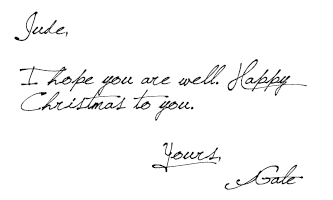 Jude,
I hope you are well. Happy
Christmas to you.
Yours,
Gale